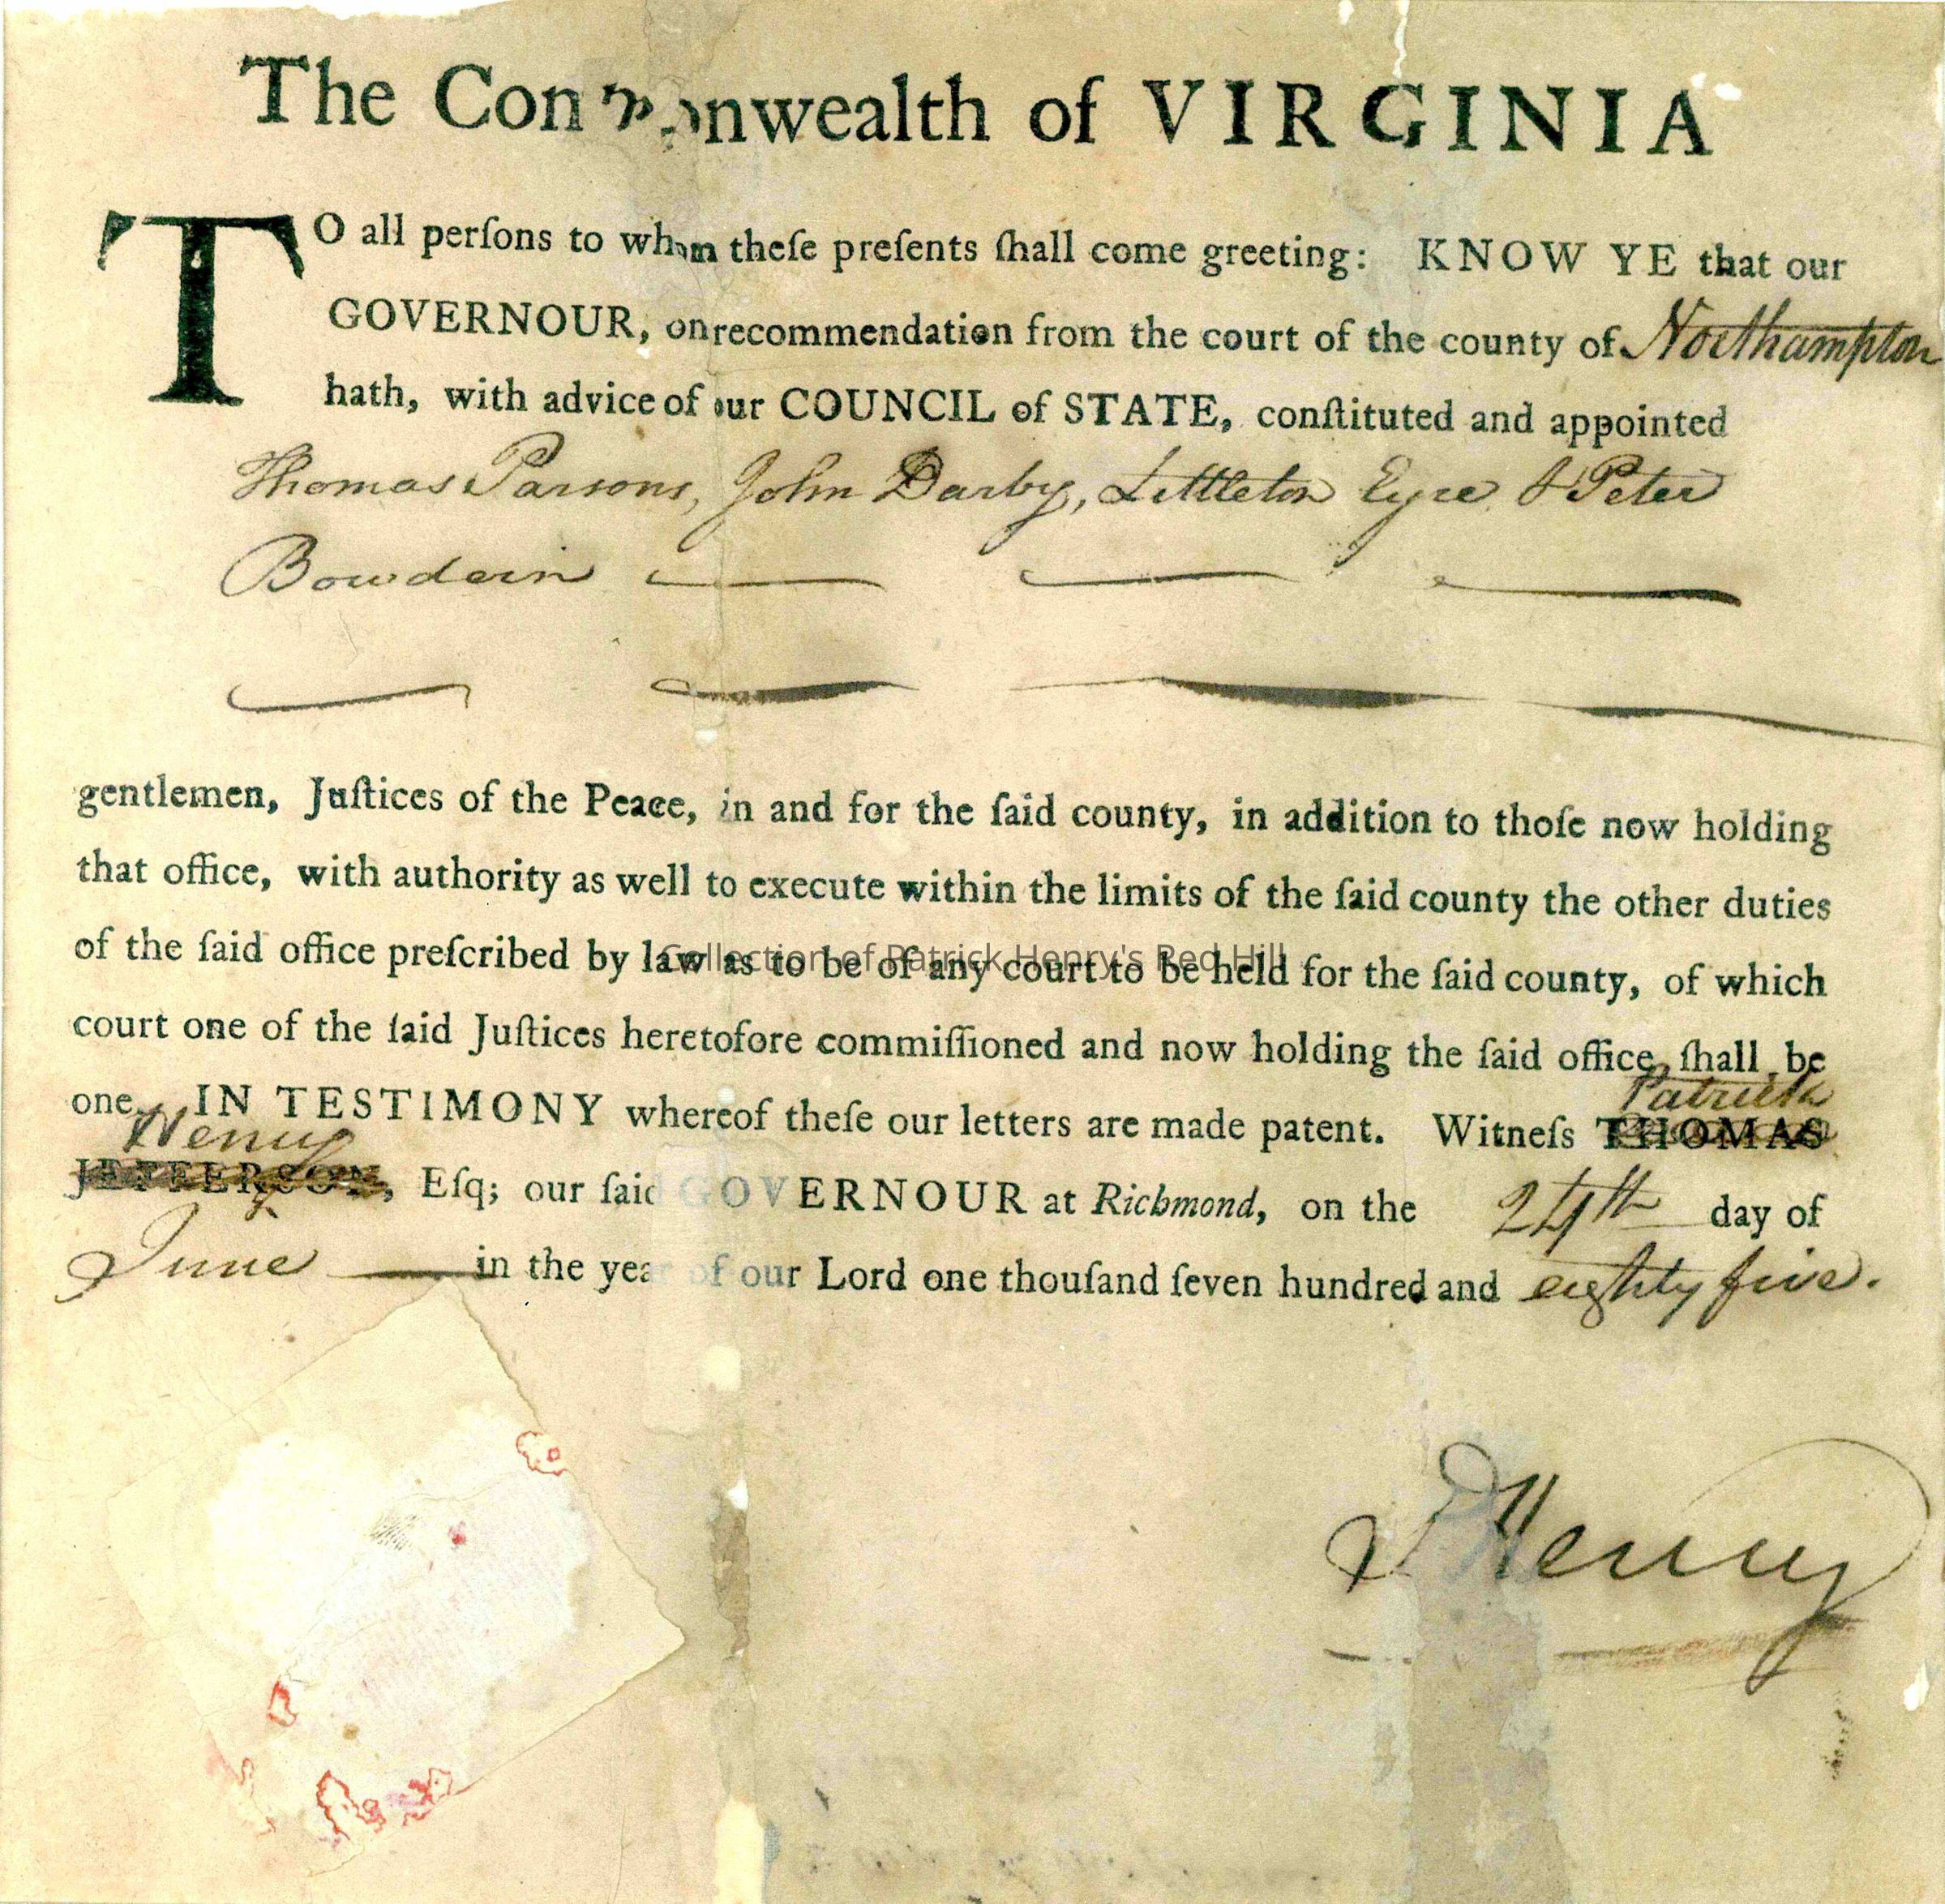 The Commonwealth of VIRGINIA
TO all perſons to whom theſe preſents ſhall come greeting: KNOW YE that our
GOVERNOUR, on recommendation from the court of the county of Northampton
hath, with advice of our COUNCIL of STATE, conſtituted and appointed
Thomas Parsons, John Darby, Littleton Eyre & Peter
Bowdoin
gentlemen, Juſtices of the Peace, in and for the ſaid county, in addition to thoſe now holding
that office, with authority as well to execute within the limits of the ſaid county the other duties
of the ſaid office preſcribed by law as to be of any court to be held for the ſaid county, of which
Collection of Patrick Henry's Red Hill
court one of the ſaid Juſtices heretofore commiſſioned and now holding the ſaid office, ſhall be
Patrick
one. IN TESTIMONY whereof theſe our letters are made patent. Witneſs THOMAS
Henry
JEFFERSON, Eſq; our ſaid GOVERNOUR at Richmond, on the 24th day of
June in the year of our Lord one thouſand ſeven hundred and eighty five.
P Henry